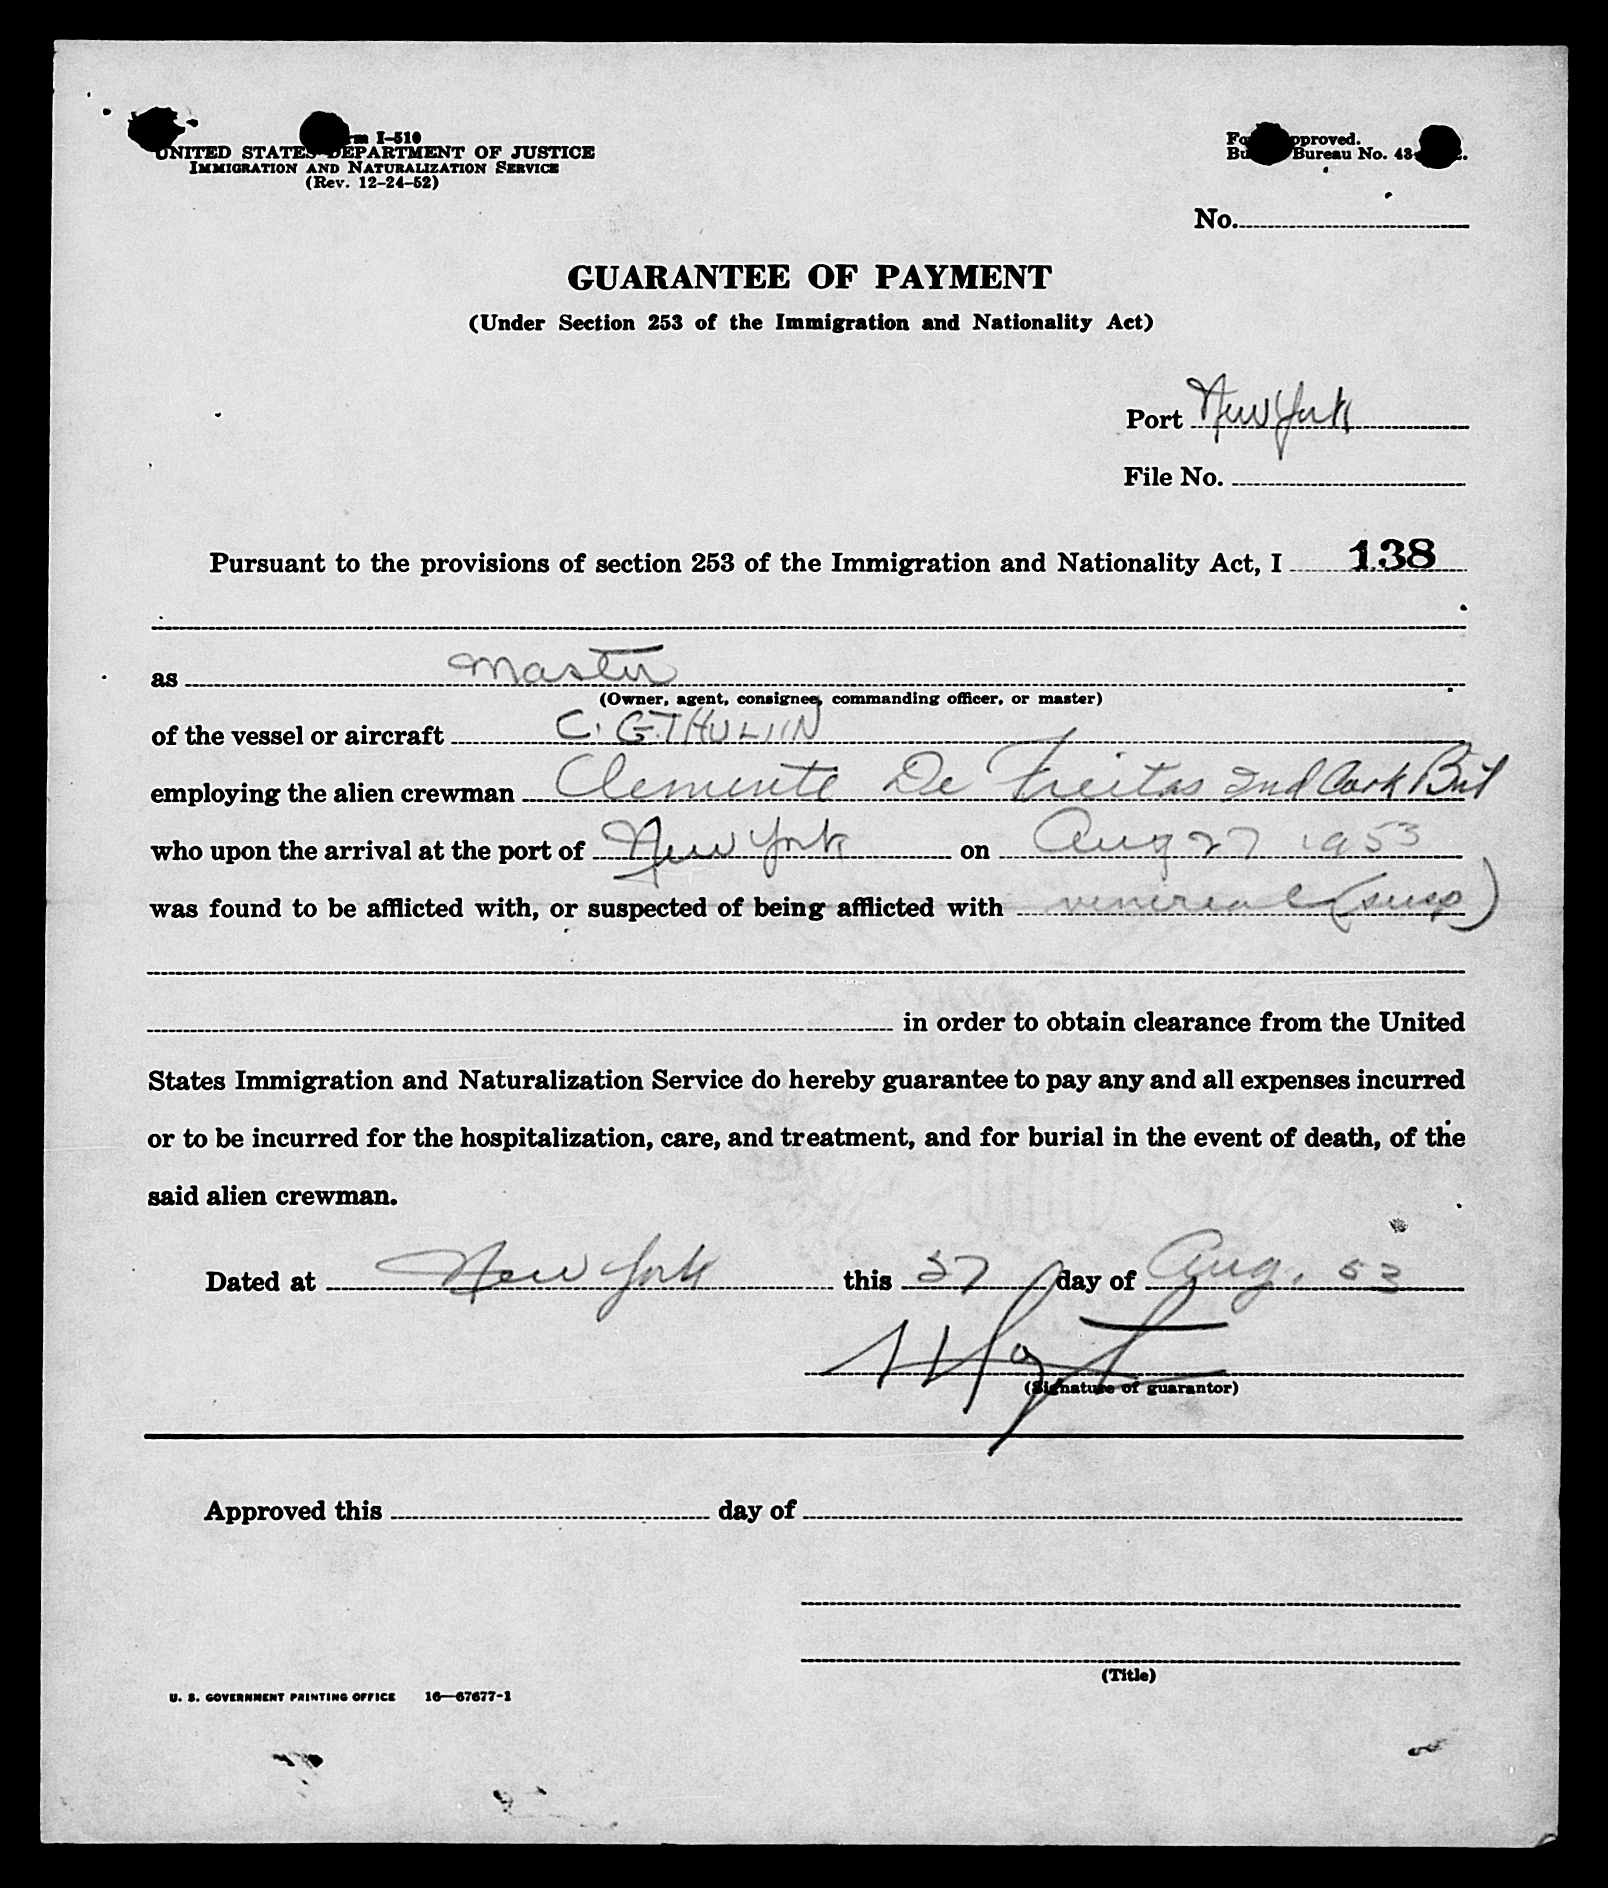 I-510
UNITED STATES DEPARTMENT OF JUSTICE
IMMIGRATION AND NATURALIZATION SERVICE
(Rev. 12-24-52)
Bureau No. 43
No.
GUARANTEE OF PAYMENT
(Under Section 253 of the Immigration and Nationality Act)
Port New York
File No.
Pursuant to the provisions of section 253 of the Immigration and Nationality Act, I 138
as Master
(Owner, agent, consignee, commanding officer, or master)
of the vessel or aircraft C. G. THULIN
employing the alien crewman Clemente De Freitas 2nd Cook Brit
who upon the arrival at the port of New York on Aug 27 1953
was found to be afflicted with, or suspected of being afflicted with venereal (susp)
in order to obtain clearance from the United
States Immigration and Naturalization Service do hereby guarantee to pay any and all expenses incurred
or to be incurred for the hospitalization, care, and treatment, and for burial in the event of death, of the
said alien crewman.
Dated at New York this 27 day of Aug. 53
(Signature of guarantor)
Approved this day of
(Title)
U. S. GOVERNMENT PRINTING OFFICE 16—67677-1